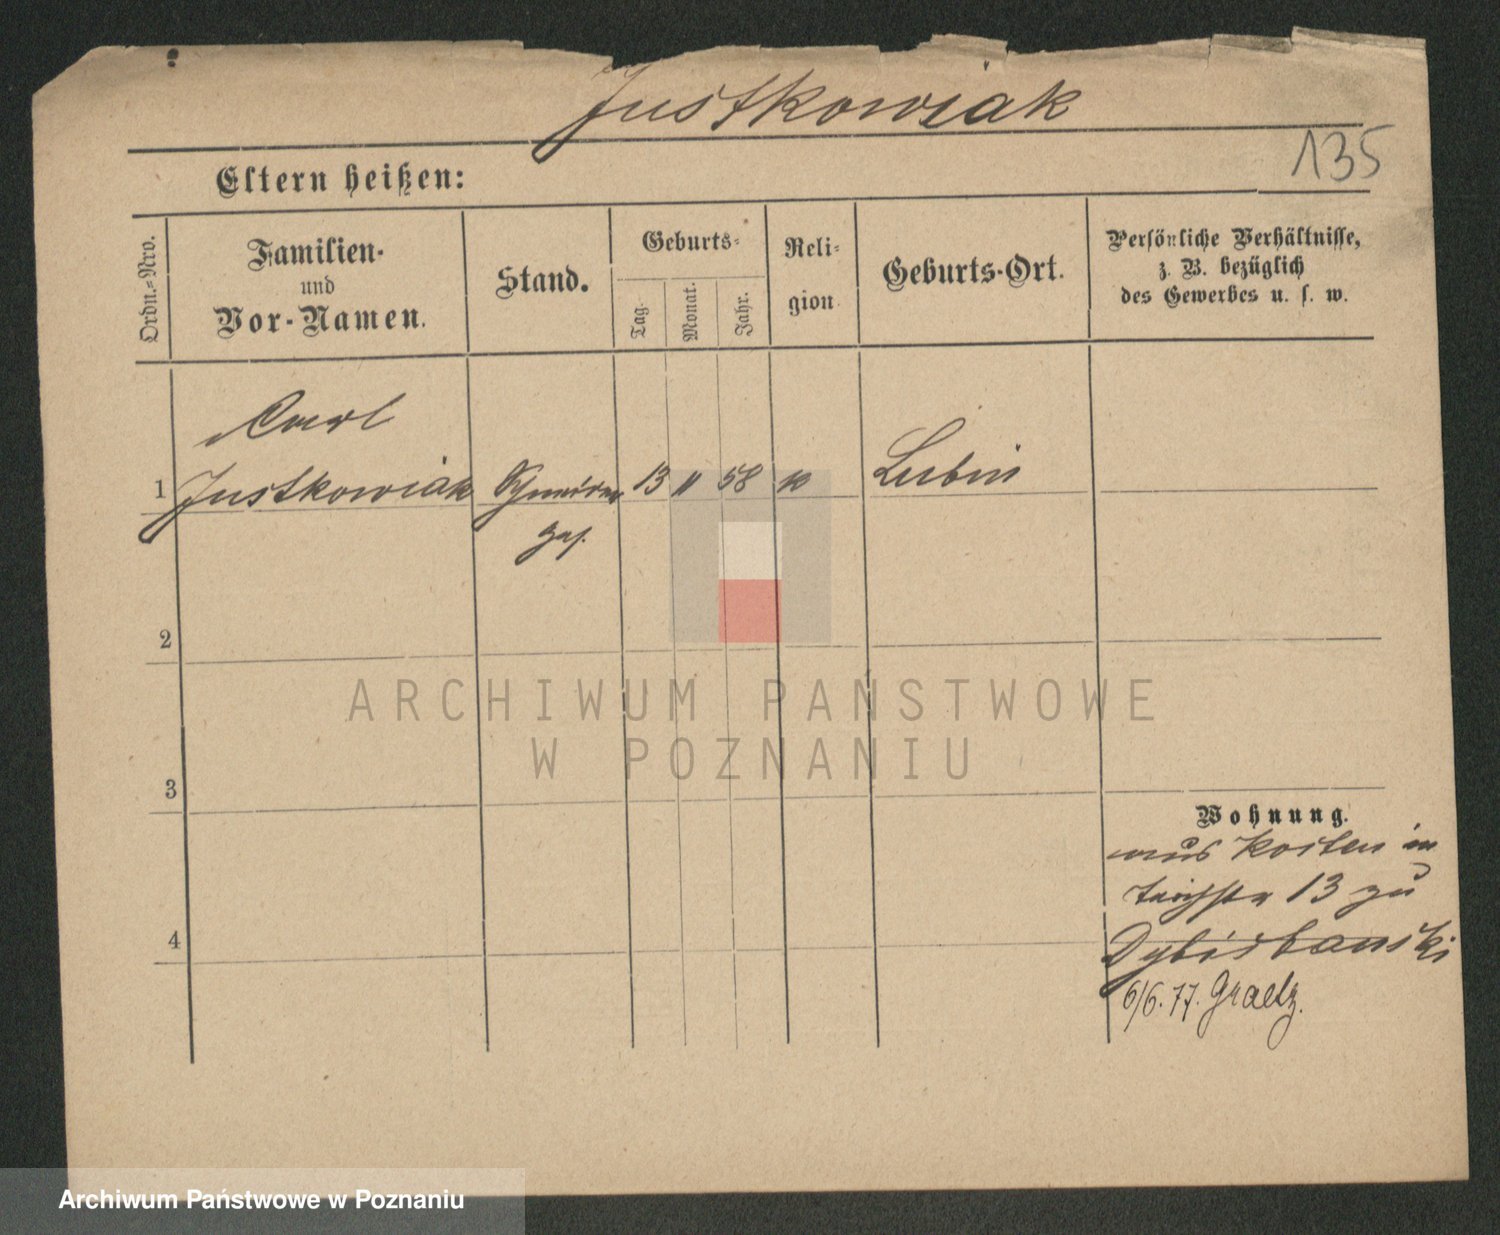 Justkowiak
135
Eltern heißen:
Ordn.=Nro.
Familien-
und
Vor-Namen.
Stand.
Geburts-
Tag.
Monat.
Jahr.
Reli-
gion
Geburts-Ort.
Persönliche Verhältnisse,
z. B. bezüglich
des Gewerbes u. s. w.
Carl
1 Justkowiak Schneider 13 11 58 k Lubin
ges.
2
3
4
Wohnung.
aus Kosten in
13 zu
6/6. 77. Graetz.
ARCHIWUM PAŃSTWOWE
W POZNANIU
Archiwum Państwowe w Poznaniu